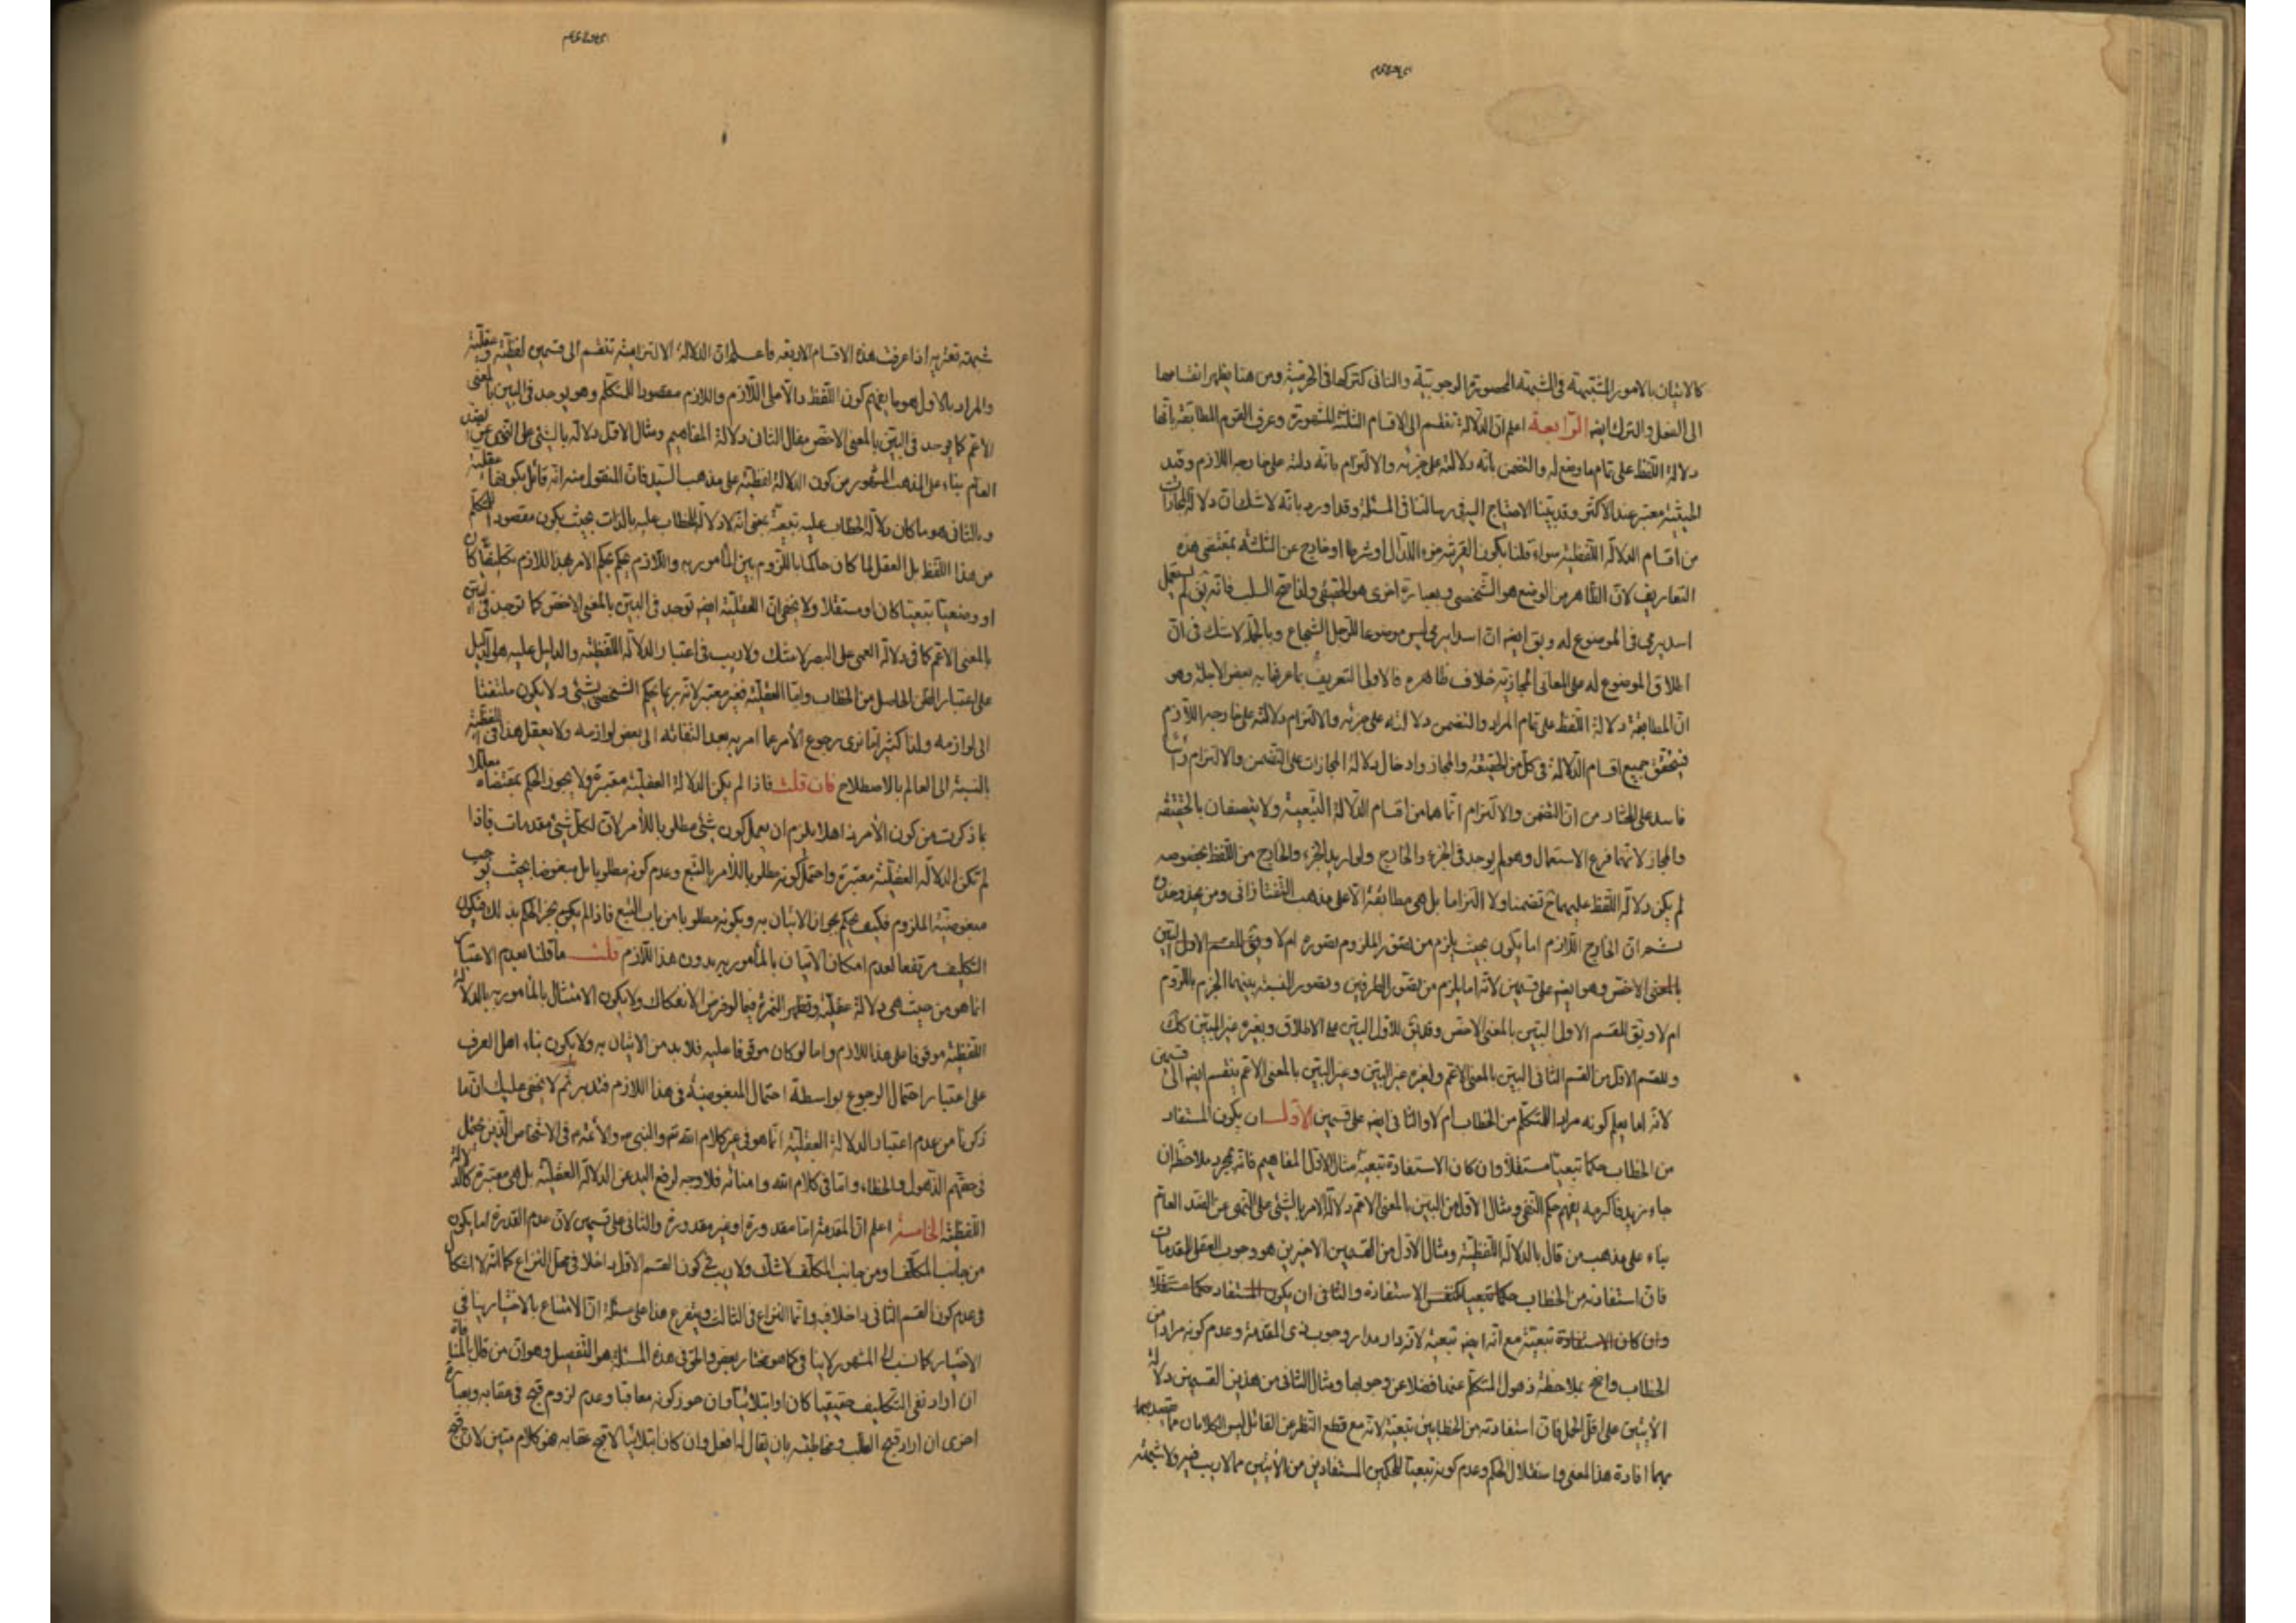 كالاتيان بالامور المشتبهة فى الشبهة المحصورة الوجوبية والثانى كتركها فى الحرمية ومن هنا يظهر انقسامها
الى الفعل والترك ايضا الرابعة اعلم ان الدلالة تنقسم الى الاقسام الثلثة المشهورة وعرف القوم المطابقة بانها
دلالة اللفظ على تمام ما وضع له والتضمن بانه دلالته على جزئه والالتزام بانه دلالته على خارجه اللازم وقيد
الحيثية معتبر عند الاكثر وقد بينا الاحتياج اليه فى رسالتنا فى المسئلة وقد اورد بانه لا شك ان دلالة المجازات
من اقسام الدلالة اللفظية سواء قلنا بكون القرينة جزء الدال او شرطا او خارج عن الثلثة بمقتضى هذه
التعاريف لان الظاهر من الوضع هو الشخصى وبعبارة اخرى هو الحقيقى ولذا صح السلب فانه يق لم يستعمل
اسد يرمى فى الموضوع له ويق ايضا ان اسدا يرمى ليس موضوعا للرجل الشجاع وبالجملة لا شك فى ان
اطلاق الموضوع له على المعانى المجازية خلاف ظاهره فالاولى التعريف بما عرفنا به بعض الاجلة وهو
ان المطابقة دلالة اللفظ على تمام المراد والتضمن دلالته على جزئه والالتزام دلالته على خارجه اللازم
فيتحقق جميع اقسام الدلالة فى كل من الحقيقة والمجاز وادخال دلالة المجازات على التضمن والالتزام
فاسد على المختار من ان التضمن والالتزام انما هما من اقسام الدلالة التبعية ولا يتصفان بالحقيقة
والمجاز لانهما فرع الاستعمال وهو لم يوجد فى الجزء والخارج ولو اريد الجزء والخارج من اللفظ بخصوصه
لم يكن دلالة اللفظ عليهما ح تضمنا ولا التزاما بل هى مطابقة الا على مذهب التفتازانى ومن
ثم ان الخارج اللازم اما يكون بحيث يلزم من تصور الملزوم تصوره ام لا ويق للقسم الاول البين
بالمعنى الاخص وهو ايضا على قسمين لانه اما يلزم من تصور الطرفين وتصور النسبة بينهما الجزم باللزوم
ام لا ويق للقسم الاول البين بالمعنى الاخص وقد يق للاول البين على الاطلاق ولغيره غير البين كك
وللقسم الاول من القسم الثانى البين بالمعنى الاعم ولغيره غير البين وغير البين بالمعنى الاعم ينقسم ايضا الى قسمين
لانه اما يعلم كونه مراد المتكلم من الخطاب ام لا والثانى ايضا على قسمين الاول ان يكون المستفاد
من الخطاب حكما تبعيا مستقلا وان كان الاستفادة تبعية مثال الاول المفاهيم فانه بمجرد ملاحظة ان
جاء زيد فاكرمه يفهم حكم النفى ومثال الاول من البين بالمعنى الاعم دلالة الامر بالشئ على النهى عن الضد العام
بناء على مذهب من قال بالدلالة اللفظية ومثال الاول من القسمين الاخيرين هو وجوب العقلى للمقدمات
فان استفادته من الخطاب حكما تبعيا كنفس الاستفادة والثانى ان يكون المستفاد حكما مستقلا
وان كان الاستفادة تبعية مع انه ايضا تبعية لانه دار مدار وجوب ذى المقدمة وعدم كونه مرادا من
الخطاب واضح بملاحظة ذهول المتكلم عنها فضلا عن وجوبها ومثال الثانى من هذين القسمين دلالة
الآيتين على اقل الحمل فان استفادته من الخطابين تبعية لانه مع قطع النظر عن القائل ليس الكلامان مما يقصد بهما
بهما افادة هذا المعنى واستقلال الحكم وعدم كونه تبعيا للحكمين المستفادين من الآيتين مما لا ريب فيه ولا شبهة
شبهة تعتريه اذا عرفت هذه الاقسام الاربعة فاعلم ان الدلالة الالتزامية تنقسم الى قسمين لفظية وعقلية
والمراد بالاول هو ما يفهم كون اللفظ دالا على اللازم واللازم مقصودا للمتكلم وهو يوجد فى البين بالمعنى
الاعم كما يوجد فى البين بالمعنى الاخص مثال الثانى دلالة المفاهيم ومثال الاول دلالة بالشئ على النهى عن الضد
العام بناء على المذهب المشهور من كون الدلالة لفظية على مذهب السيد فان المنقول منه انه قائل بكونها عقلية
والثانى هو ما كان دلالة الخطاب عليه تبعية بمعنى انه لا دلالة للخطاب عليه بالذات بحيث يكون مقصود المتكلم
من هذا اللفظ بل العقل لما كان حاكما باللزوم بين المأمور به واللازم يحكم بحكم الامر بهذا اللازم تكليفيا كان
او وضعيا تبعيا كان او مستقلا ولا يخفى ان العقلية ايضا توجد فى البين بالمعنى الاخص كما توجد فى البين
بالمعنى الاعم كما فى دلالة العمى على البصر لا شك ولا ريب فى اعتبار الدلالة اللفظية والدليل عليه هو الدليل
على اعتبار الظن الحاصل من الخطاب واما العقلية فغير معتبر لانه ربما يحكم الشخص بشئ ولا يكون ملتفتا
الى لوازمه ولذا كثيرا ما نرى رجوع الأمر عما امر به بعد التفاته الى بعض لوازمه ولا يعقل هذا فى اللفظية
بالنسبة الى العالم بالاصطلاح فان قلت فاذا لم يكن الدلالة العقلية معتبرة ولا يجوز الحكم بمقتضاه معللا
بما ذكرت من كون الأمر ذاهلا يلزم ان يهمل كون شئ مطلوبا للأمر لان لكل شئ مقدمات فاذا
لم تكن الدلالة العقلية معتبرة واحتمل كونه مطلوبا للأمر بالتبع وعدم كونه مطلوبا بل مبغوضا بحيث يوجب
مبغوضية الملزوم فكيف يحكم بجواز الاتيان به وبكونه مطلوبا من باب التبع فاذا لم يكن يجز الحكم بذلك فيكون
التكليف مرتفعا لعدم امكان الاتيان بالمأمور به بدون هذا اللازم قلت ما قلنا بعدم الاعتبار
انما هو من حيث هى دلالة عقلية وتظهر الثمرة فيما لو فرض الانفكاك ولا يكون الامتثال بالمأمور به بالدلالة
اللفظية موقوفا على هذا اللازم واما لو كان موقوفا عليه فلا بد من الاتيان به ولا يكون بناء اهل العرف
على اعتبار احتمال الرجوع بواسطة احتمال المبغوضية فى هذا اللازم فتدبر ثم لا يخفى عليك ان ما
ذكرنا من عدم اعتبار الدلالة العقلية انما هو فى غير كلام الله تع والنبى ص والأئمة ع فى الاشخاص الذين يحتمل
فى حقهم الذهول والخطاء واما فى كلام الله وامنائه فلا وجه لرفع اليد عن الدلالة العقلية بل هى معتبرة كالدلالة
اللفظية الخامسة اعلم ان المقدمة اما مقدورة او غير مقدورة والثانى على قسمين لان عدم القدرة اما يكون
من جانب المكلف او من جانب المكلف لا شك ولا ريب فى كون القسم الاول داخلا فى محل النزاع كما انه لا اشكال
فى عدم كون القسم الثانى داخلا فيه وانما النزاع فى الثالث ويتفرع هذا على مسئلة ان الامتناع بالاختيار ينافى
الاختيار كما نسب الى المشهور لا ينافى كما هو مختار بعض والحق فى هذه المسئلة هو التفصيل وهو ان من قال بالمنافاة
ان اراد نفى التكليف حقيقيا كان او ابتلائيا وان جوز كونه معاقبا وعدم لزوم قبح فى عقابه وبعبارة
اخرى ان اراد قبح الطلب ومخاطبته بان يقال له افعل وان كان ابتلائيا لا قبح عقابه فهو كلام متين لان قبح